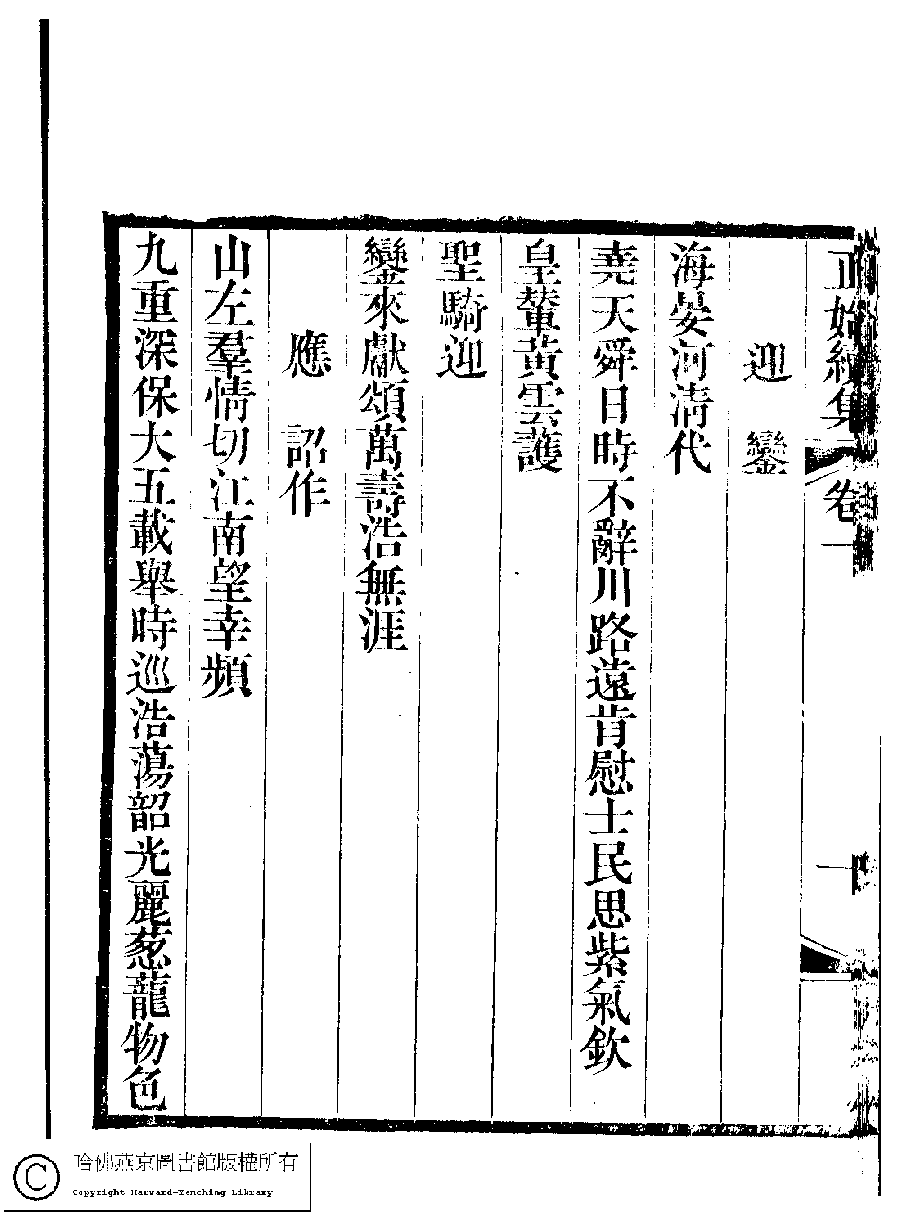 正始續集 卷一
一
迎鑾
海晏河清代
堯天舜日時不辭川路遠肯慰士民思紫氣欽
皇輦黃雲護
聖騎迎
鑾來獻頌萬壽浩無涯
應 詔作
山左羣情切江南望幸頻
九重深保大五載舉時巡浩蕩韶光麗葱蘢物色
哈佛燕京圖書館版權所有
Copyright Harvard-Yenching Library